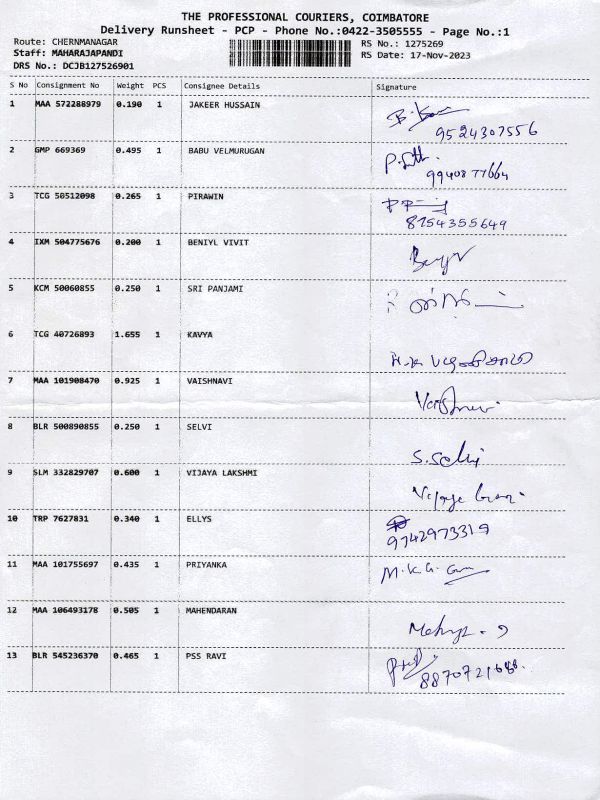 THE PROFESSIONAL COURIERS, COIMBATORE
Delivery Runsheet - PCP - Phone No.:0422-3505555 - Page No.:1
Route: CHERNMANAGAR
Staff: MAHARAJAPANDI
DRS No.: DCJB127526901
RS No.: 1275269
RS Date: 17-Nov-2023
S No Consignment No Weight PCS Consignee Details Signature
1 MAA 572288979 0.190 1 JAKEER HUSSAIN
9524307556
2 GMP 669369 0.495 1 BABU VELMURUGAN
9940877664
3 TCG 50512098 0.265 1 PIRAWIN
8754355649
4 IXM 504775676 0.200 1 BENIYL VIVIT
5 KCM 50060855 0.250 1 SRI PANJAMI
6 TCG 40726893 1.655 1 KAVYA
7 MAA 101908470 0.925 1 VAISHNAVI
8 BLR 500890855 0.250 1 SELVI
S.Selvi
9 SLM 332829707 0.600 1 VIJAYA LAKSHMI
10 TRP 7627831 0.340 1 ELLYS
9742973319
11 MAA 101755697 0.435 1 PRIYANKA
12 MAA 106493178 0.505 1 MAHENDARAN
13 BLR 545236370 0.465 1 PSS RAVI